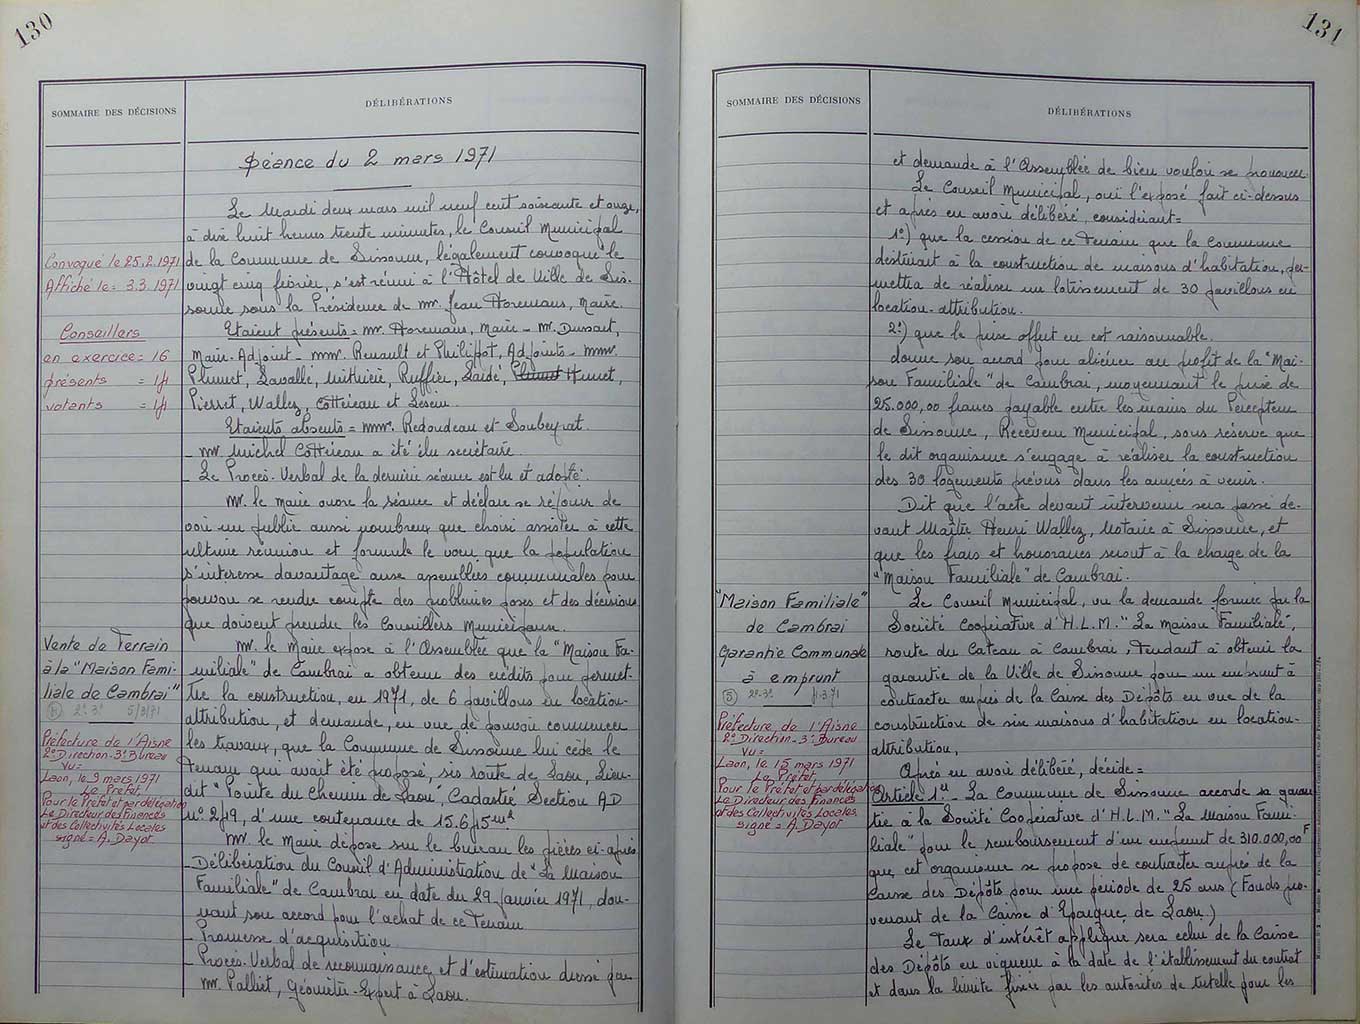 130
SOMMAIRE DES DÉCISIONS
DÉLIBÉRATIONS
Séance du 2 mars 1971
Le Mardi deux mars mil neuf cent soixante et onze,
à dix huit heures trente minutes, le Conseil Municipal
de la Commune de Sissonne, légalement convoqué le
vingt cinq février, s'est réuni à l'Hôtel de Ville de Sis-
sonne sous la Présidence de mr. Jean Horemans, Maire.
Etaient présents = mr. Horemans, Maire - mr. Dussart,
Maire-Adjoint - mmr. Renault et Philippot, Adjoints - mmr.
Plumet, Lavallé, Ruffier, Laidé, Plumet Humet,
Pierret, Wallez, Cottereau et
Etaients absents = mmr. Redoudeau et Soubeyrat.
- mr. Michel Cottereau a été élu secrétaire.
- Le Procès-Verbal de la dernière séance est lu et adopté.
mr. le Maire ouvre la séance et déclare se réjouir de
voir un public aussi nombreux que choisi assister à cette
ultime réunion et formule le vœu que la population
s'intéresse davantage aux assemblées communales pour
pouvoir se rendre compte des problèmes posés et des décisions
que doivent prendre les Conseillers Municipaux.
mr. le Maire expose à l'Assemblée que la "Maison Fa-
miliale" de Cambrai a obtenu des crédits pour permet-
tre la construction, en 1971, de 6 pavillons en location-
attribution, et demande, en vue de pouvoir commencer
les travaux, que la Commune de Sissonne lui cède le
Terrain qui avait été proposé, sis route de Laon, Lieu-
dit "Pointe du Chemin de Laon", Cadastré Section AD
n° 249, d'une contenance de 15.645 m²
mr. le Maire dépose sur le bureau les pièces ci-après
- Délibération du Conseil d'Administration de "La Maison
Familiale" de Cambrai en date du 29 Janvier 1971, don-
nant son accord pour l'achat de ce Terrain
- Promesse d'acquisition
- Procès-Verbal de reconnaissance et d'estimation dressé par
mr. Palliet, Géomètre-Expert à Laon.
Convoqué le 25.2.1971
Affiché le = 3.3.1971
Conseillers
en exercice = 16
présents = 14
votants = 14
Vente de Terrain
à la "Maison Fami-
liale de Cambrai"
4 2e 3e 5/3/71
Préfecture de l'Aisne
2° Direction - 3° Bureau
VU =
Laon, le 9 mars 1971
Le Préfet,
Pour le Préfet et par délégation
Le Directeur des Finances
et des Collectivités Locales
signé = A. Dayot
131
SOMMAIRE DES DÉCISIONS
DÉLIBÉRATIONS
et demande à l'Assemblée de bien vouloir se prononcer.
Le Conseil Municipal, oui l'exposé fait ci-dessus
et après en avoir délibéré, considérant =
1°) que la cession de ce Terrain que la Commune
destinait à la construction de maisons d'habitation, per-
mettra de réaliser un lotissement de 30 pavillons en
location-attribution.
2°) que le prix offert en est raisonnable.
donne son accord pour aliéner au profit de la "Mai-
son Familiale" de Cambrai, moyennant le prix de
25.000,00 francs payable entre les mains du Percepteur
de Sissonne, Receveur Municipal, sous réserve que
le dit organisme s'engage à réaliser la construction
des 30 logements prévus dans les années à venir.
Dit que l'acte devant intervenir sera passé de-
vant Maître Henri Wallez, Notaire à Sissonne, et
que les frais et honoraires seront à la charge de la
"Maison Familiale" de Cambrai.
Le Conseil Municipal, vu la demande formée par la
Société Coopérative d'H.L.M. "La Maison Familiale",
route du Cateau à Cambrai, Tendant à obtenir la
garantie de la Ville de Sissonne pour un emprunt à
contracter auprès de la Caisse des Dépôts en vue de la
construction de six maisons d'habitation en location-
attribution,
Après en avoir délibéré, décide =
Article 1er - La Commune de Sissonne accorde sa garan
tie à la Société Coopérative d'H.L.M. "La Maison Fami-
liale" pour le remboursement d'un emprunt de 310.000,00F
que cet organisme se propose de contracter auprès de la
Caisse des Dépôts pour une période de 25 ans (Fonds pro-
venant de la Caisse d'Epargne de Laon.)
Le Taux d'intérêt appliqué sera celui de la Caisse
des Dépôts en vigueur à la date de l'établissement du contrat
et dans la limite fixée par les autorités de tutelle pour les
"Maison Familiale"
de Cambrai
Garantie Communale
à emprunt
5 2e-3e
Préfecture de l'Aisne
2° Direction - 3° Bureau
VU =
Laon, le 15 mars 1971
Le Préfet,
Pour le Préfet et par délégation
Le Directeur des Finances
et des Collectivités Locales
signé = A. Dayot